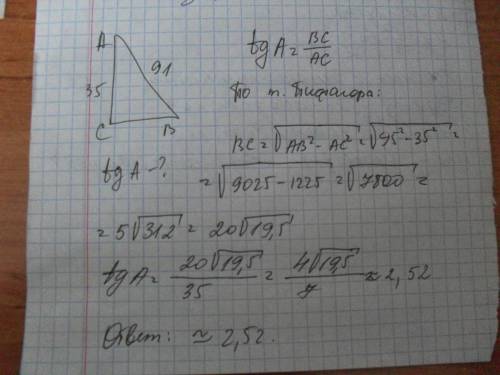 A
35
91
C
B
tg A - ?
tg A = BC/AC
По т. Пифагора:
BC = √(AB² - AC²) = √(95² - 35²) =
= √(9025 - 1225) = √7800 =
= 5√312 = 20√19,5
tg A = 20√19,5/35 = 4√19,5/7 ≈ 2,52
Ответ: ≃ 2,52.